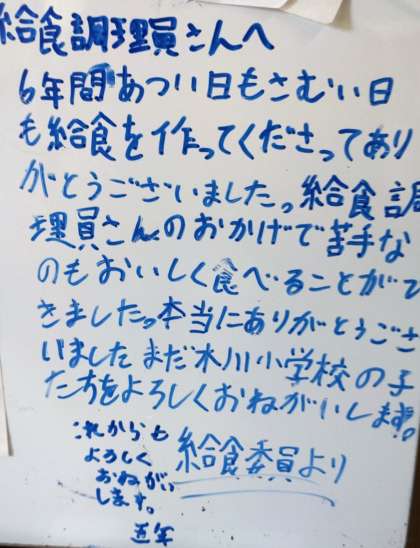 給食調理員さんへ
6年間あつい日もさむい日
も給食を作ってくださってあり
がとうございました。給食調
理員さんのおかげで苦手な
のもおいしく食べることがで
きました。本当にありがとうござ
いましたまだ木川小学校の子
たちをよろしくおねがいします。
給食委員より
これからも
よろしく
おねがい
します。
五年